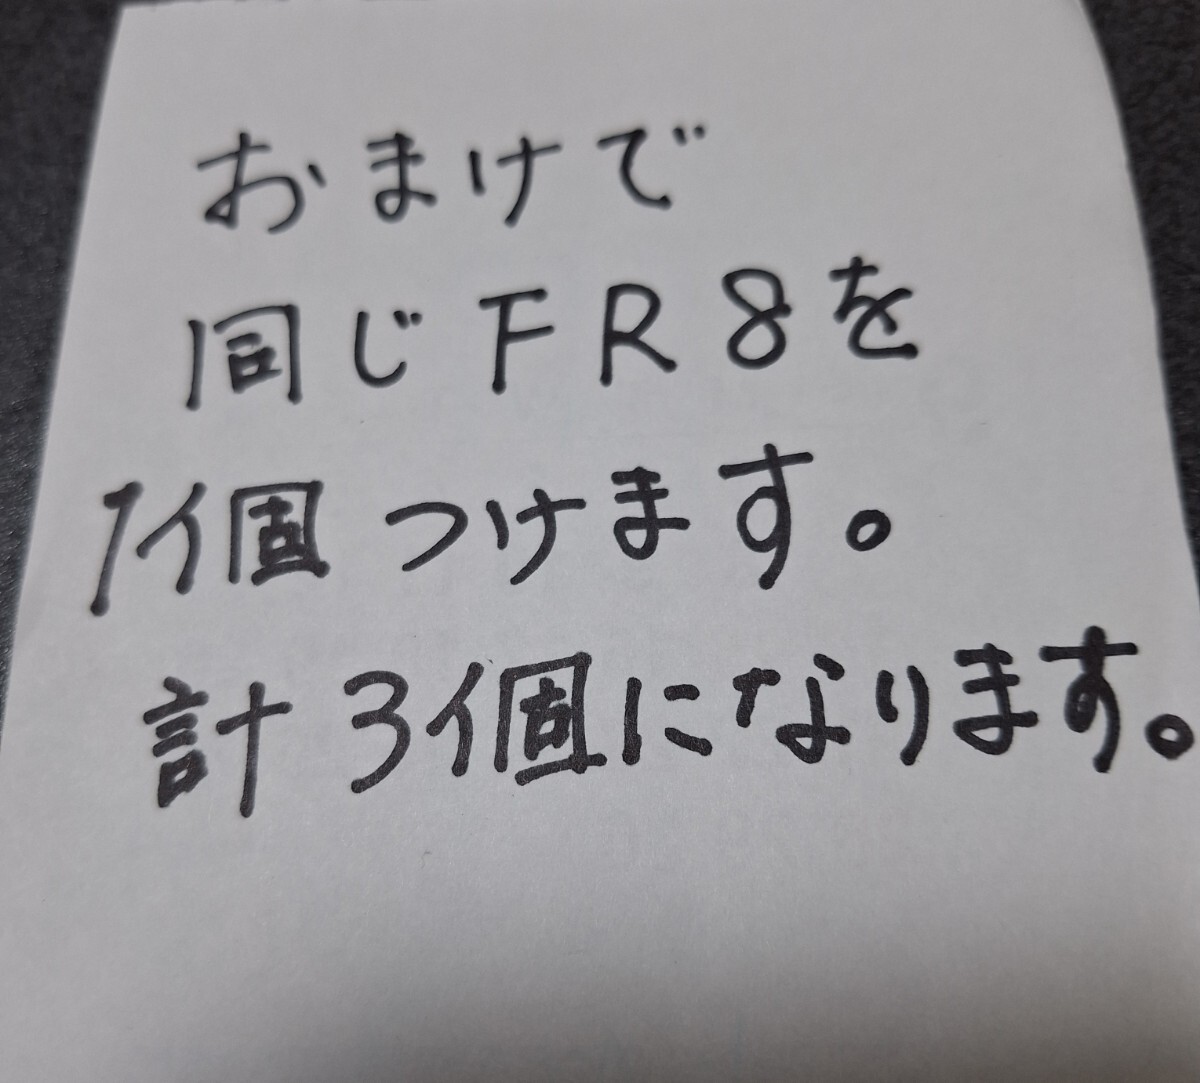 おまけで
同じFR8を
1個つけます。
計3個になります。